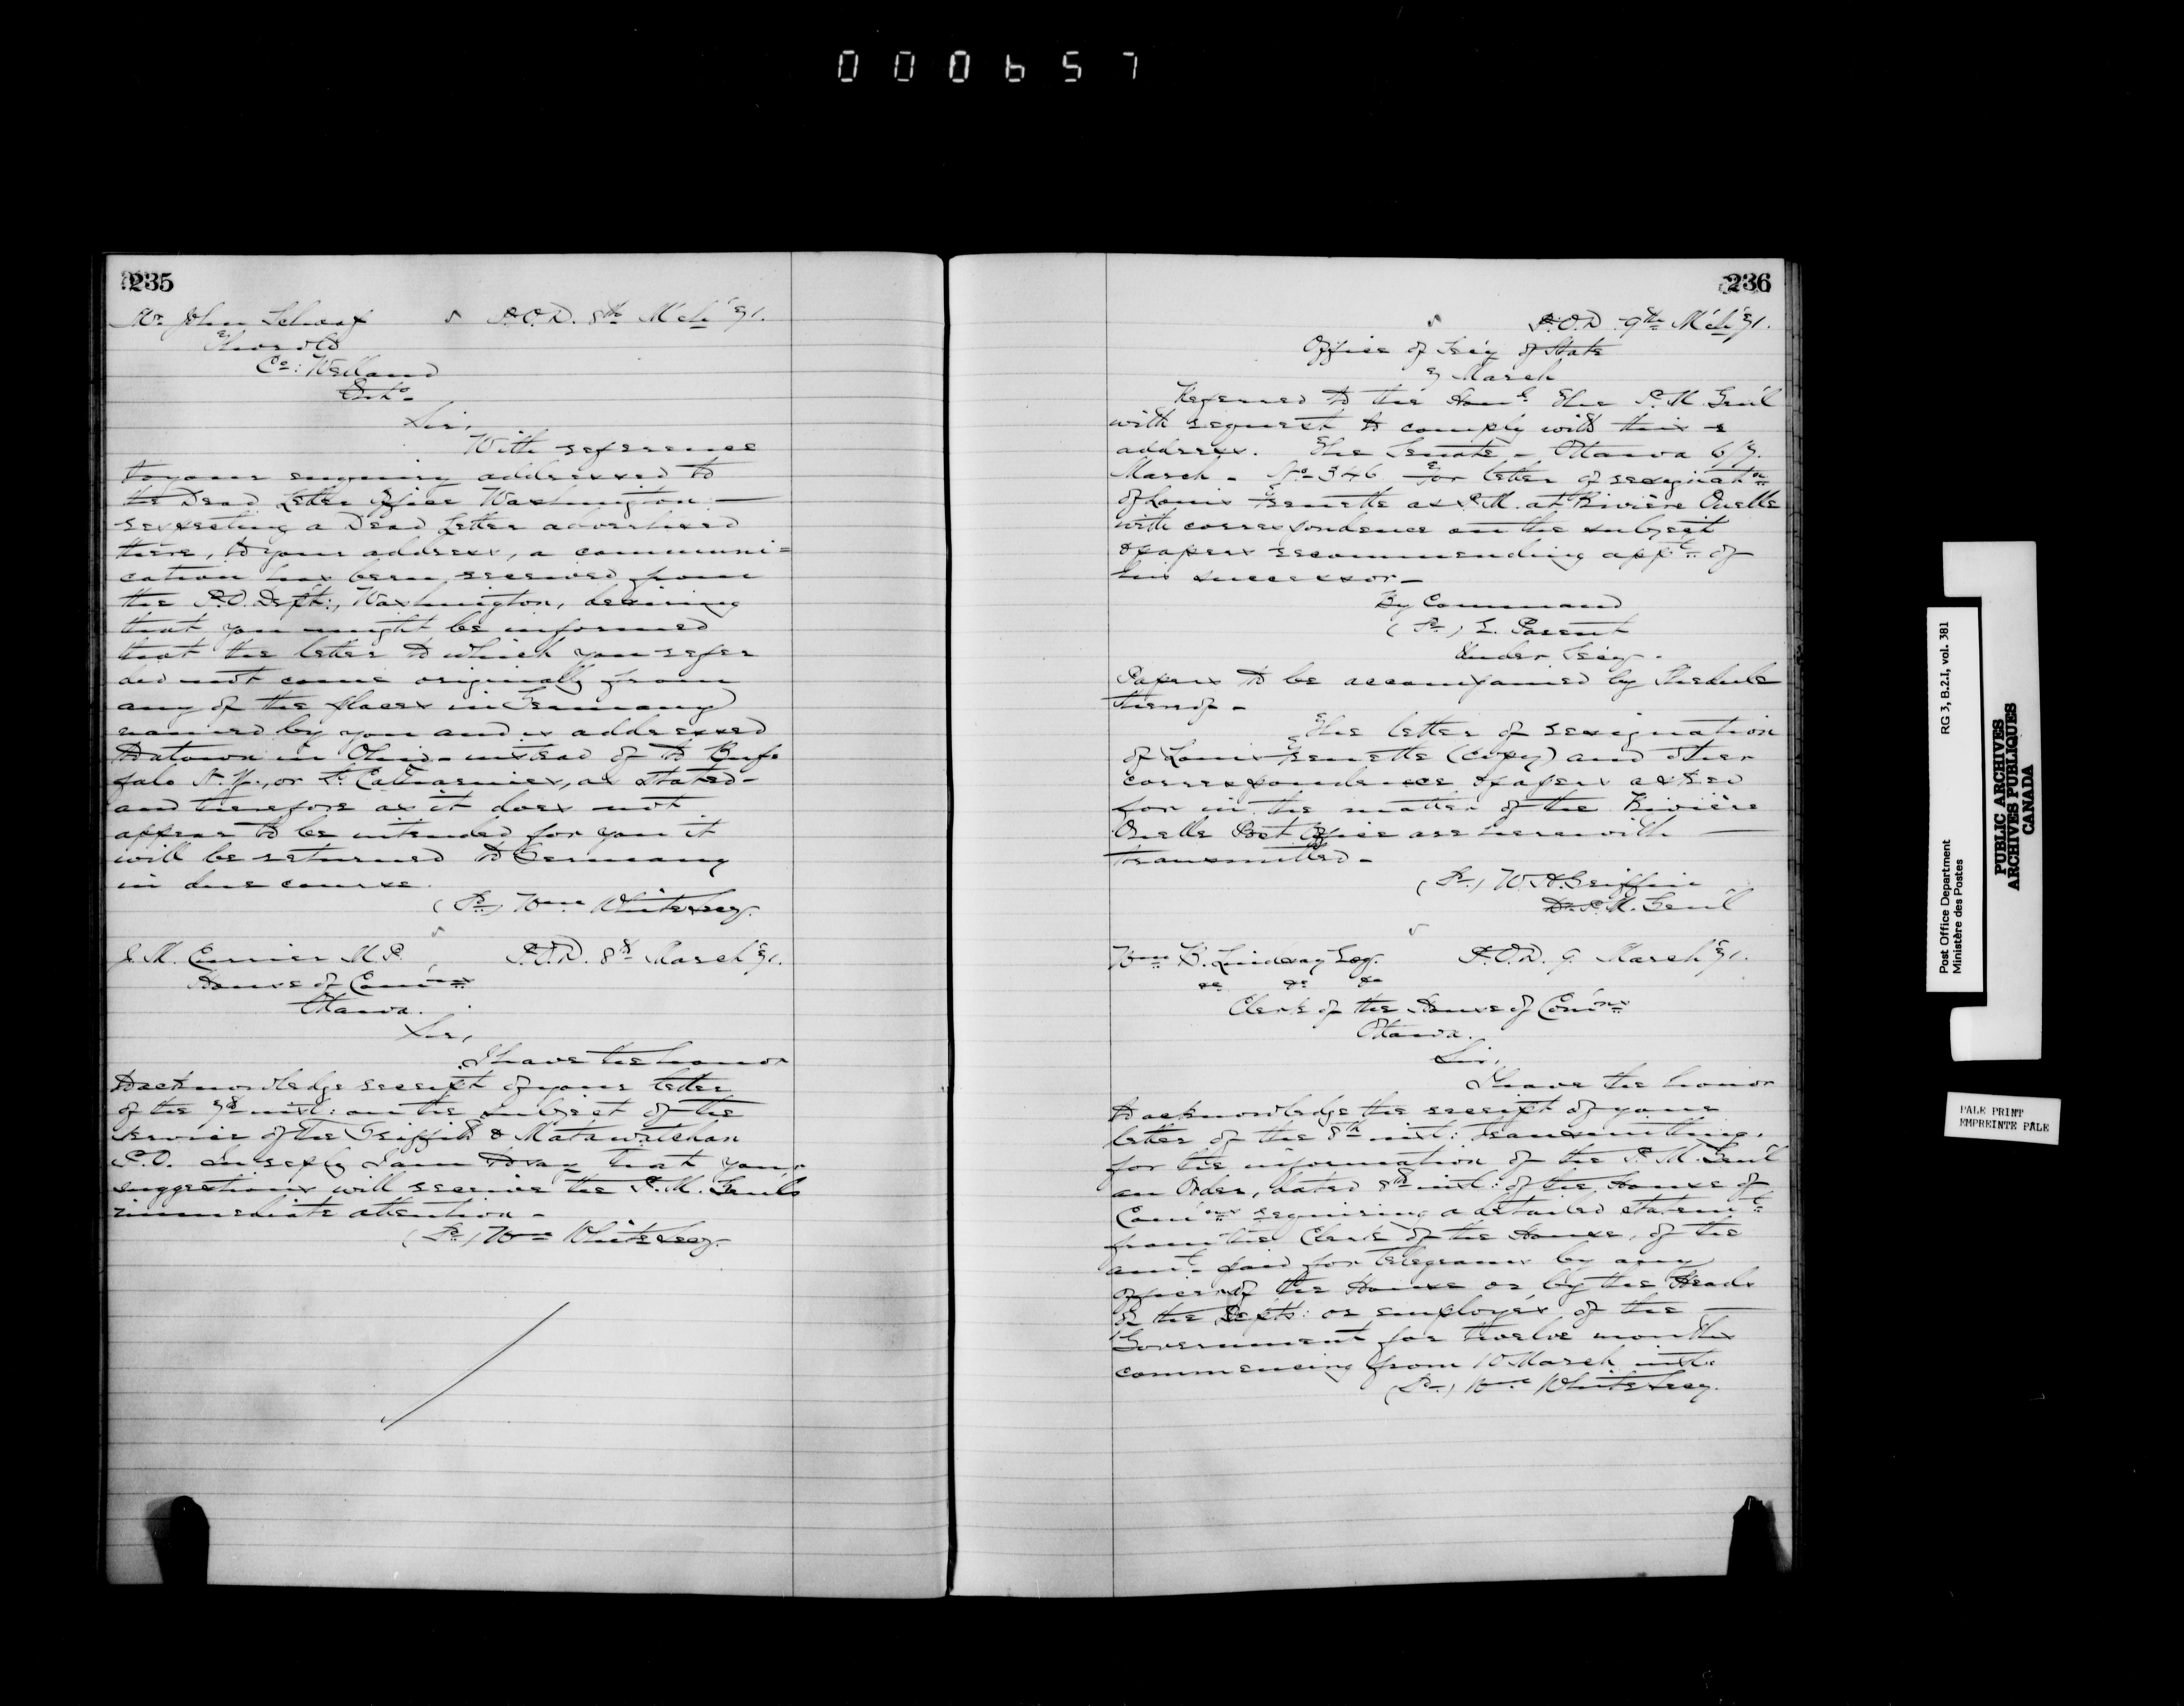 000657
235
Mr. John Schaaf P.O.D. 8th Mch '71.
Thorold
Co: Welland
Onto
Sir,
With reference
to your enquiry addressed to
the Dead Letter Office Washington
respecting a Dead Letter advertised
there, to your address, a communi=
cation has been received from
the P.O. Dept:, Washington, desiring
that you might be informed
that the letter to which you refer
did not come originally from
any of the places in Germany
named by you and is addressed
to a town in Ohio - instead of to Buf-
falo N.Y., or St. Catharines, as stated -
and therefore as it does not
appear to be intended for you it
will be returned to Germany
in due course.
(Sd) Wm White Secy.
J. M. Currier M.P. P.O.D. 8th March '71.
House of Com'ns
Ottawa.
Sir,
I have the honor
to acknowledge receipt of your letter
of the 7th inst: on the subject of the
service of the Griffith & Matawatchan
P.O. In reply I am to say that your
suggestions will receive the P.M. Genl's
immediate attention -
(Sd) Wm White Secy.
236
P.O.D. 9th Mch '71.
Office of Sec'y of State
7 March
Referred to the Honl. The P.M. Gen'l
with request to comply with this
address. The Senate - Ottawa 6/7.
March - No. 346 For letter of resignatn
of Louis Frenette as P.M. at Rivière Ouelle
with correspondence on the subject
& papers recommending appt. of
his successor -
By Command
(Sd) E. Parent
Under Sec'y.
Papers to be accompanied by Schedule
thereof -
The letter of resignation
of Louis Frenette (copy) and other
correspondence & papers asked
for in the matter of the Rivière
Ouelle Post Office are herewith
transmitted -
(Sd.) W.H. Griffin
D.P.M. Gen'l
Wm B. Lindsay Esq. P.O.D. 9 March '71.
&c &c &c
Clerk of the House of Com'ns
Ottawa.
Sir,
I have the honor
to acknowledge the receipt of your
letter of the 8th inst: transmitting,
for the information of the P.M. Gen'l
an Order, dated 8th inst: of the House of
Com'ns requiring a detailed statemt
from the Clerk of the House, of the
amt. paid for telegrams by any
officer of the House or by the Heads
of the Depts: or employés of the
Government for twelve months
commencing from 10 March inst.
(Sd) Wm White Secy.
Post Office Department RG 3, B.2.I, vol. 381
Ministère des Postes
PUBLIC ARCHIVES
ARCHIVES PUBLIQUES
CANADA
PALE PRINT
EMPREINTE PÂLE